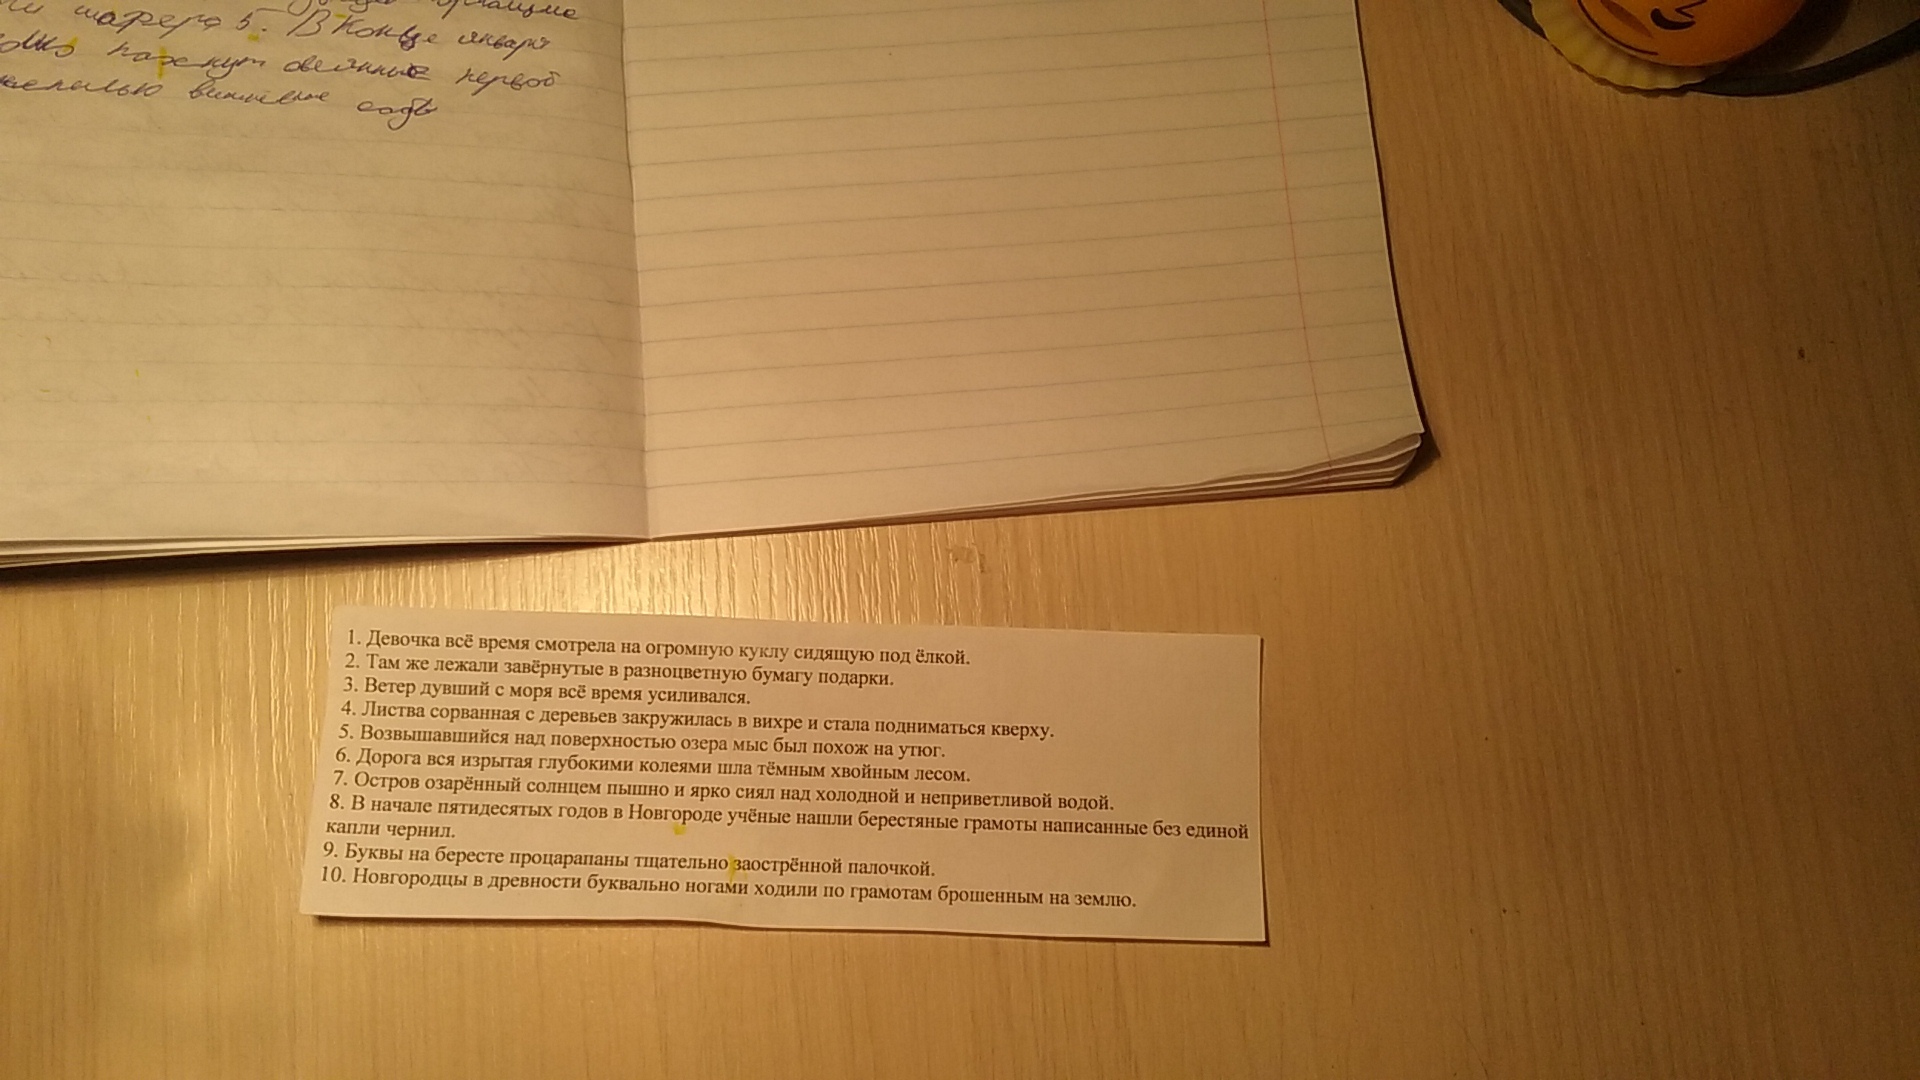 шофера 5. В конце января
пахнут овеянные первой
вишнёвые сады
1. Девочка всё время смотрела на огромную куклу сидящую под ёлкой.
2. Там же лежали завёрнутые в разноцветную бумагу подарки.
3. Ветер дувший с моря всё время усиливался.
4. Листва сорванная с деревьев закружилась в вихре и стала подниматься кверху.
5. Возвышавшийся над поверхностью озера мыс был похож на утюг.
6. Дорога вся изрытая глубокими колеями шла тёмным хвойным лесом.
7. Остров озарённый солнцем пышно и ярко сиял над холодной и неприветливой водой.
8. В начале пятидесятых годов в Новгороде учёные нашли берестяные грамоты написанные без единой
капли чернил.
9. Буквы на бересте процарапаны тщательно заострённой палочкой.
10. Новгородцы в древности буквально ногами ходили по грамотам брошенным на землю.